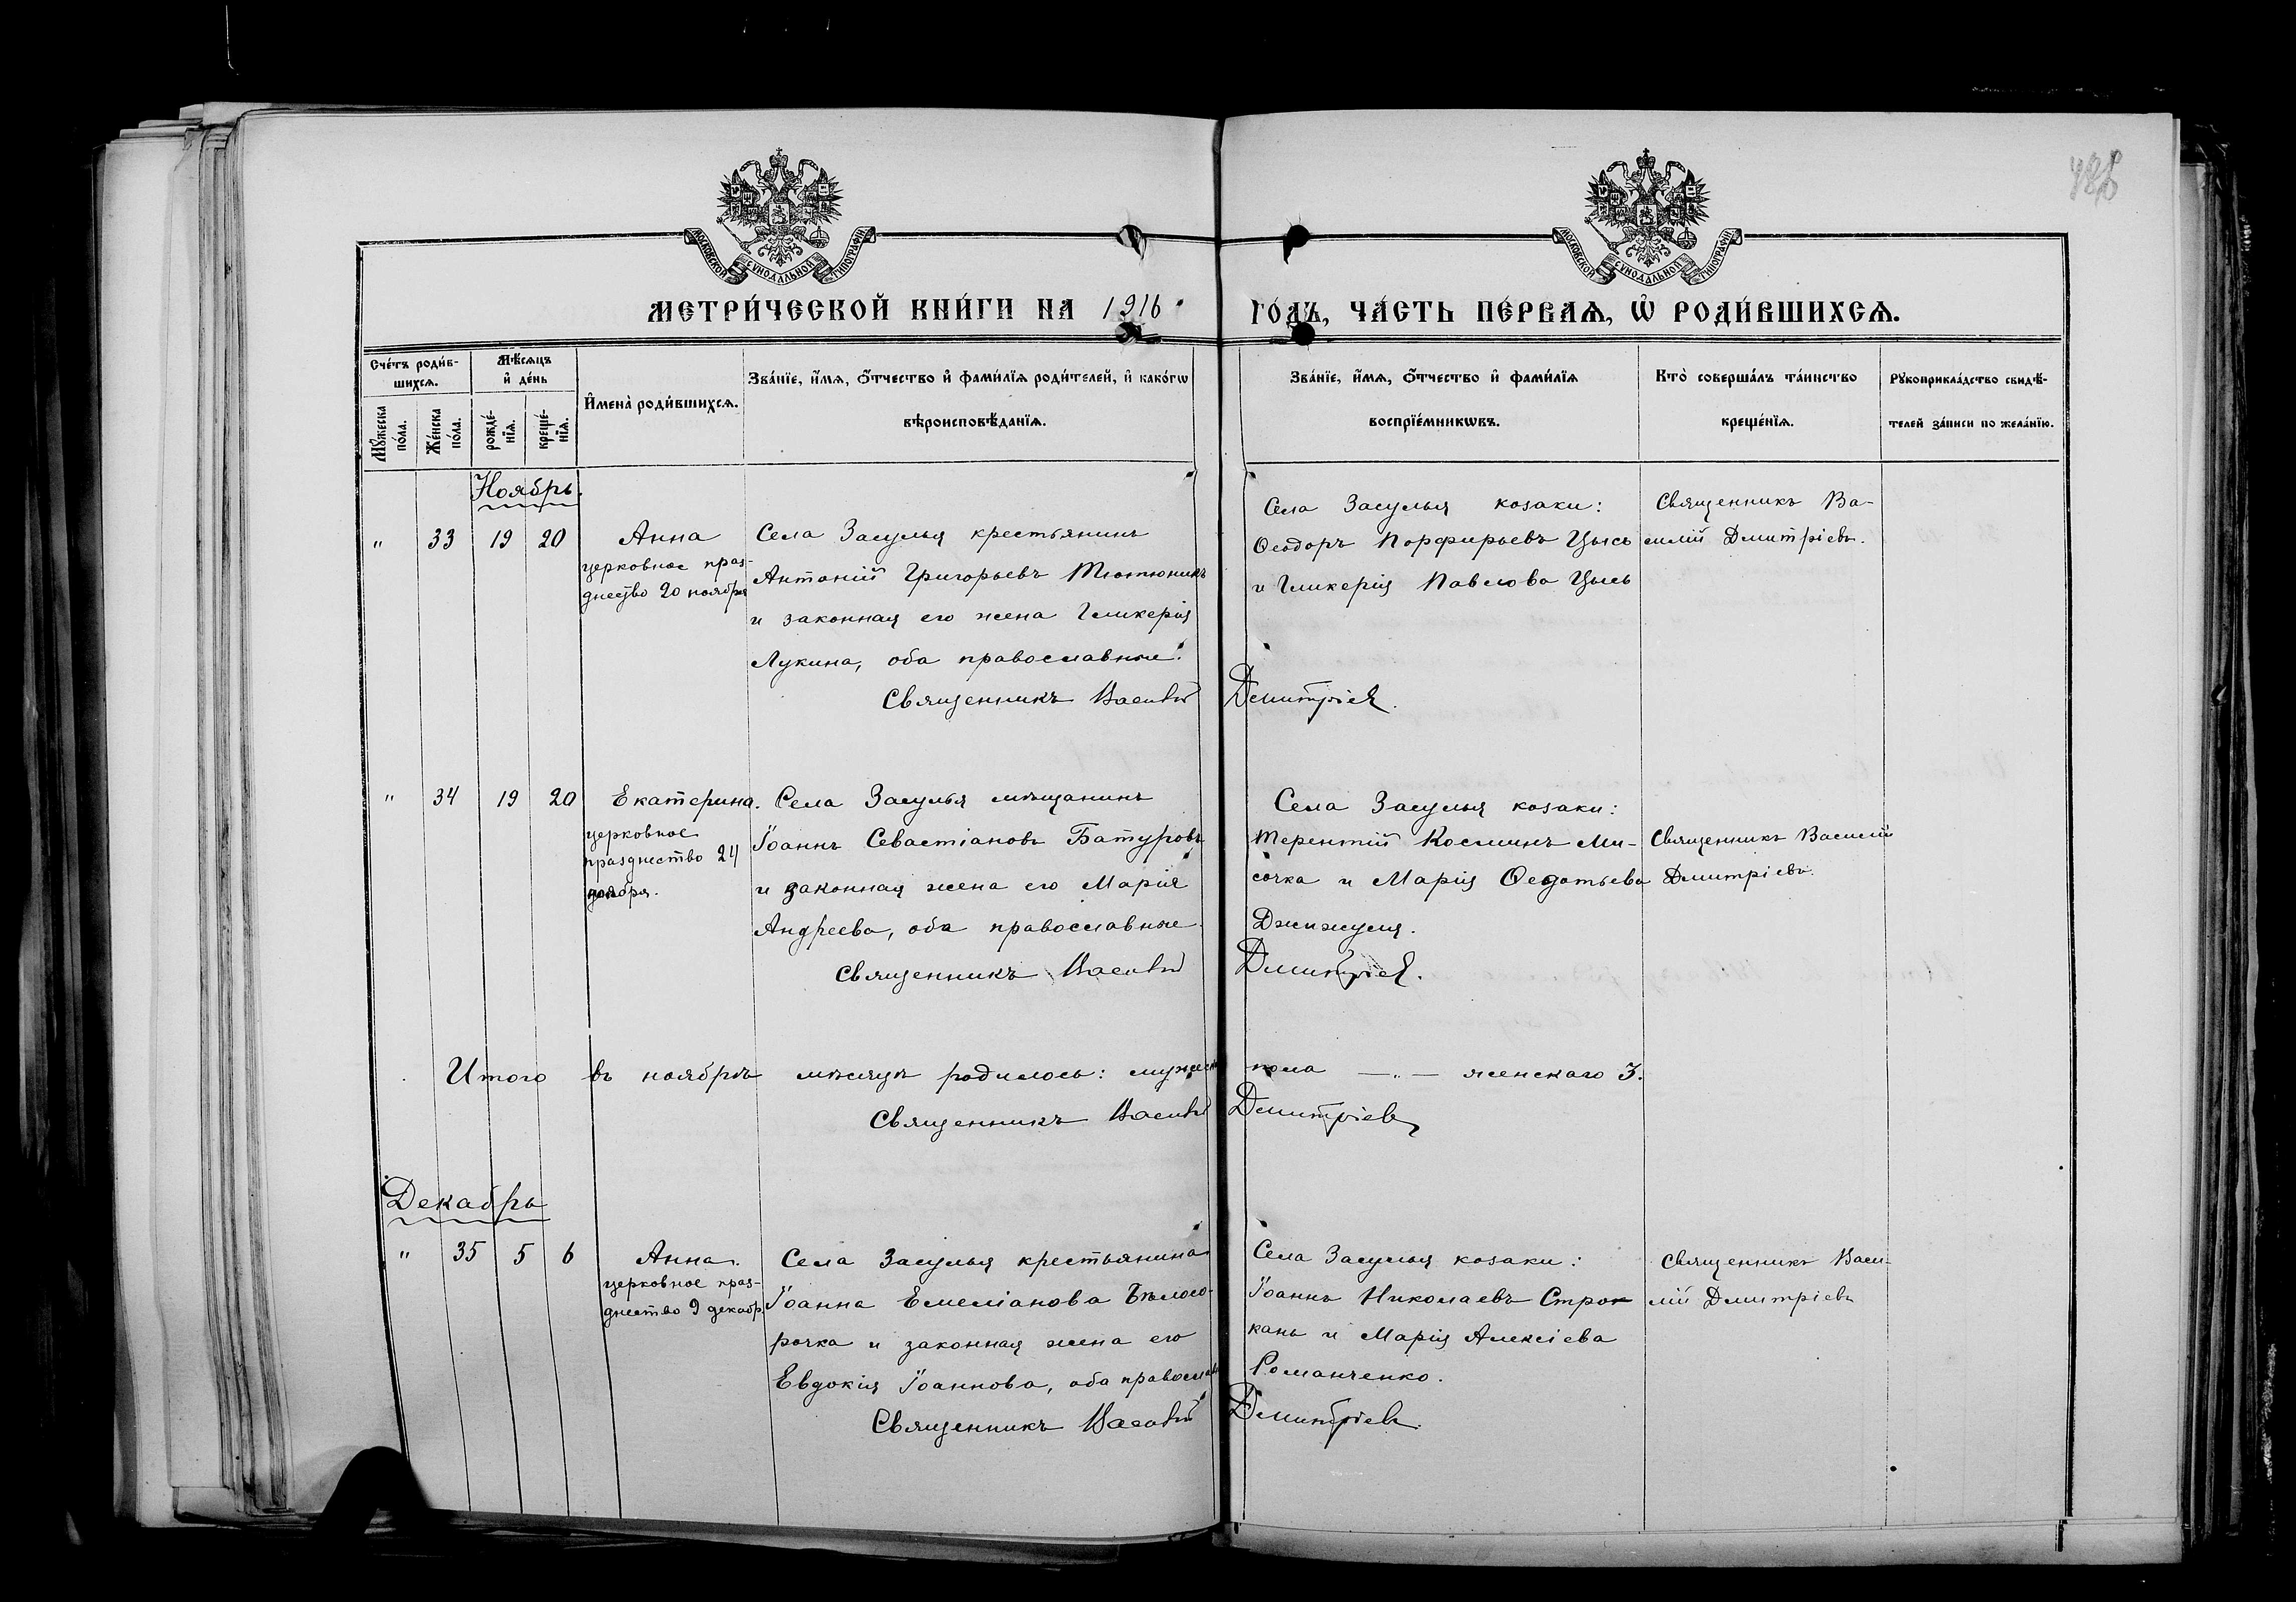 МОСКОВСКОЙ СУНОДАЛЬНОЙ ТИПОГРАФІИ
МОСКОВСКОЙ СУНОДАЛЬНОЙ ТИПОГРАФІИ
МЕТРИ́ЧЕСКОЙ КНИ́ГИ НА 1916
ГО́ДЪ, ЧА́СТЬ ПЕ́РВАѦ, Ѡ҆ РОДИ́ВШИХСѦ.
Сче́тъ роди́в-
шихсѧ.
Мꙋ́жеска по́ла.
Же́нска по́ла.
Мѣ́сѧцъ
и҆ де́нь
рожде́-
нїѧ.
креще́-
нїѧ.
И҆мена̀ роди́вшихсѧ.
Зва́нїе, и҆́мѧ, ѻ҆́тчество и҆ фами́лїѧ роди́телей, и҆ како́гѡ
вѣроисповѣ́данїѧ.
Зва́нїе, и҆́мѧ, ѻ҆́тчество и҆ фами́лїѧ
воспрїе́мникѡвъ.
Кто̀ соверша́лъ та́инство
креще́нїѧ.
Рꙋкоприкла́дство свидѣ́-
телей за́писи по жела́нїю.
Ноябрь.
" 33 19 20
Анна
церковное праз-
днество 20 ноября
Села Засулья крестьянинъ
Антоній Григорьевъ Тютюникъ
и законная его жена Гликерія
Лукина, оба православные.
Священникъ Василій Дмитріев.
Села Засулья козаки:
Ѳеодоръ Порфирьевъ Цысь
и Гликерія Павлова Цысь
Священникъ Ва-
силій Дмитріевъ.
" 34 19 20
Екатерина.
церковное
празднество 24
ноября.
Села Засулья мѣщанинъ
Іоаннъ Севастіановъ Батуровъ
и законная жена его Марія
Андреева, оба православные.
Священникъ Василій Дмитріев.
Села Засулья козаки:
Терентій Косминъ Ми-
сочка и Марія Ѳедотьева
Джижуля.
Священникъ Василій
Дмитріевъ.
Итого въ ноябрѣ мѣсяцѣ родилось: мужеск пола — " — женскаго 3.
Священникъ Василій Дмитріев
Декабрь
" 35 5 6
Анна.
церковное праз-
днество 9 декабр.
Села Засулья крестьянина
Іоанна Емеліанова Бѣлосо-
рочка и законная жена его
Евдокія Іоаннова, оба православ
Священникъ Василій Дмитріев.
Села Засулья козаки:
Іоаннъ Николаевъ Строк
кань и Марія Алексіева
Романченко.
Священникъ Васи-
лій Дмитріевъ